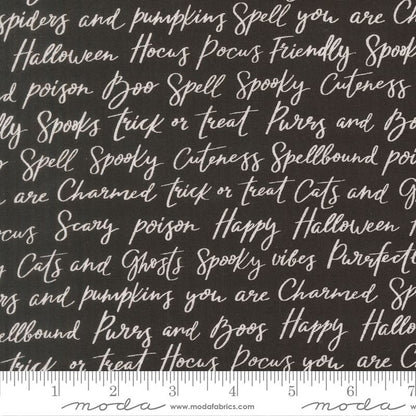 spiders and pumpkins Spell you are Ch
Halloween Hocus Pocus Friendly Spook
d poison Boo Spell Spooky Cuteness
dly Spooks trick or treat Purrs and Bo
y Spell Spooky Cuteness Spellbound poi
are Charmed trick or treat Cats and G
ocus Scary poison Happy Halloween
y Cats and Ghosts Spooky vibes Purrfectl
rs and pumpkins you are Charmed Sp
ellbound Purrs and Boos Happy Hallo
trick or treat Hocus Pocus you are C
1 2 3 4 5 6 7
moda www.modafabrics.com moda